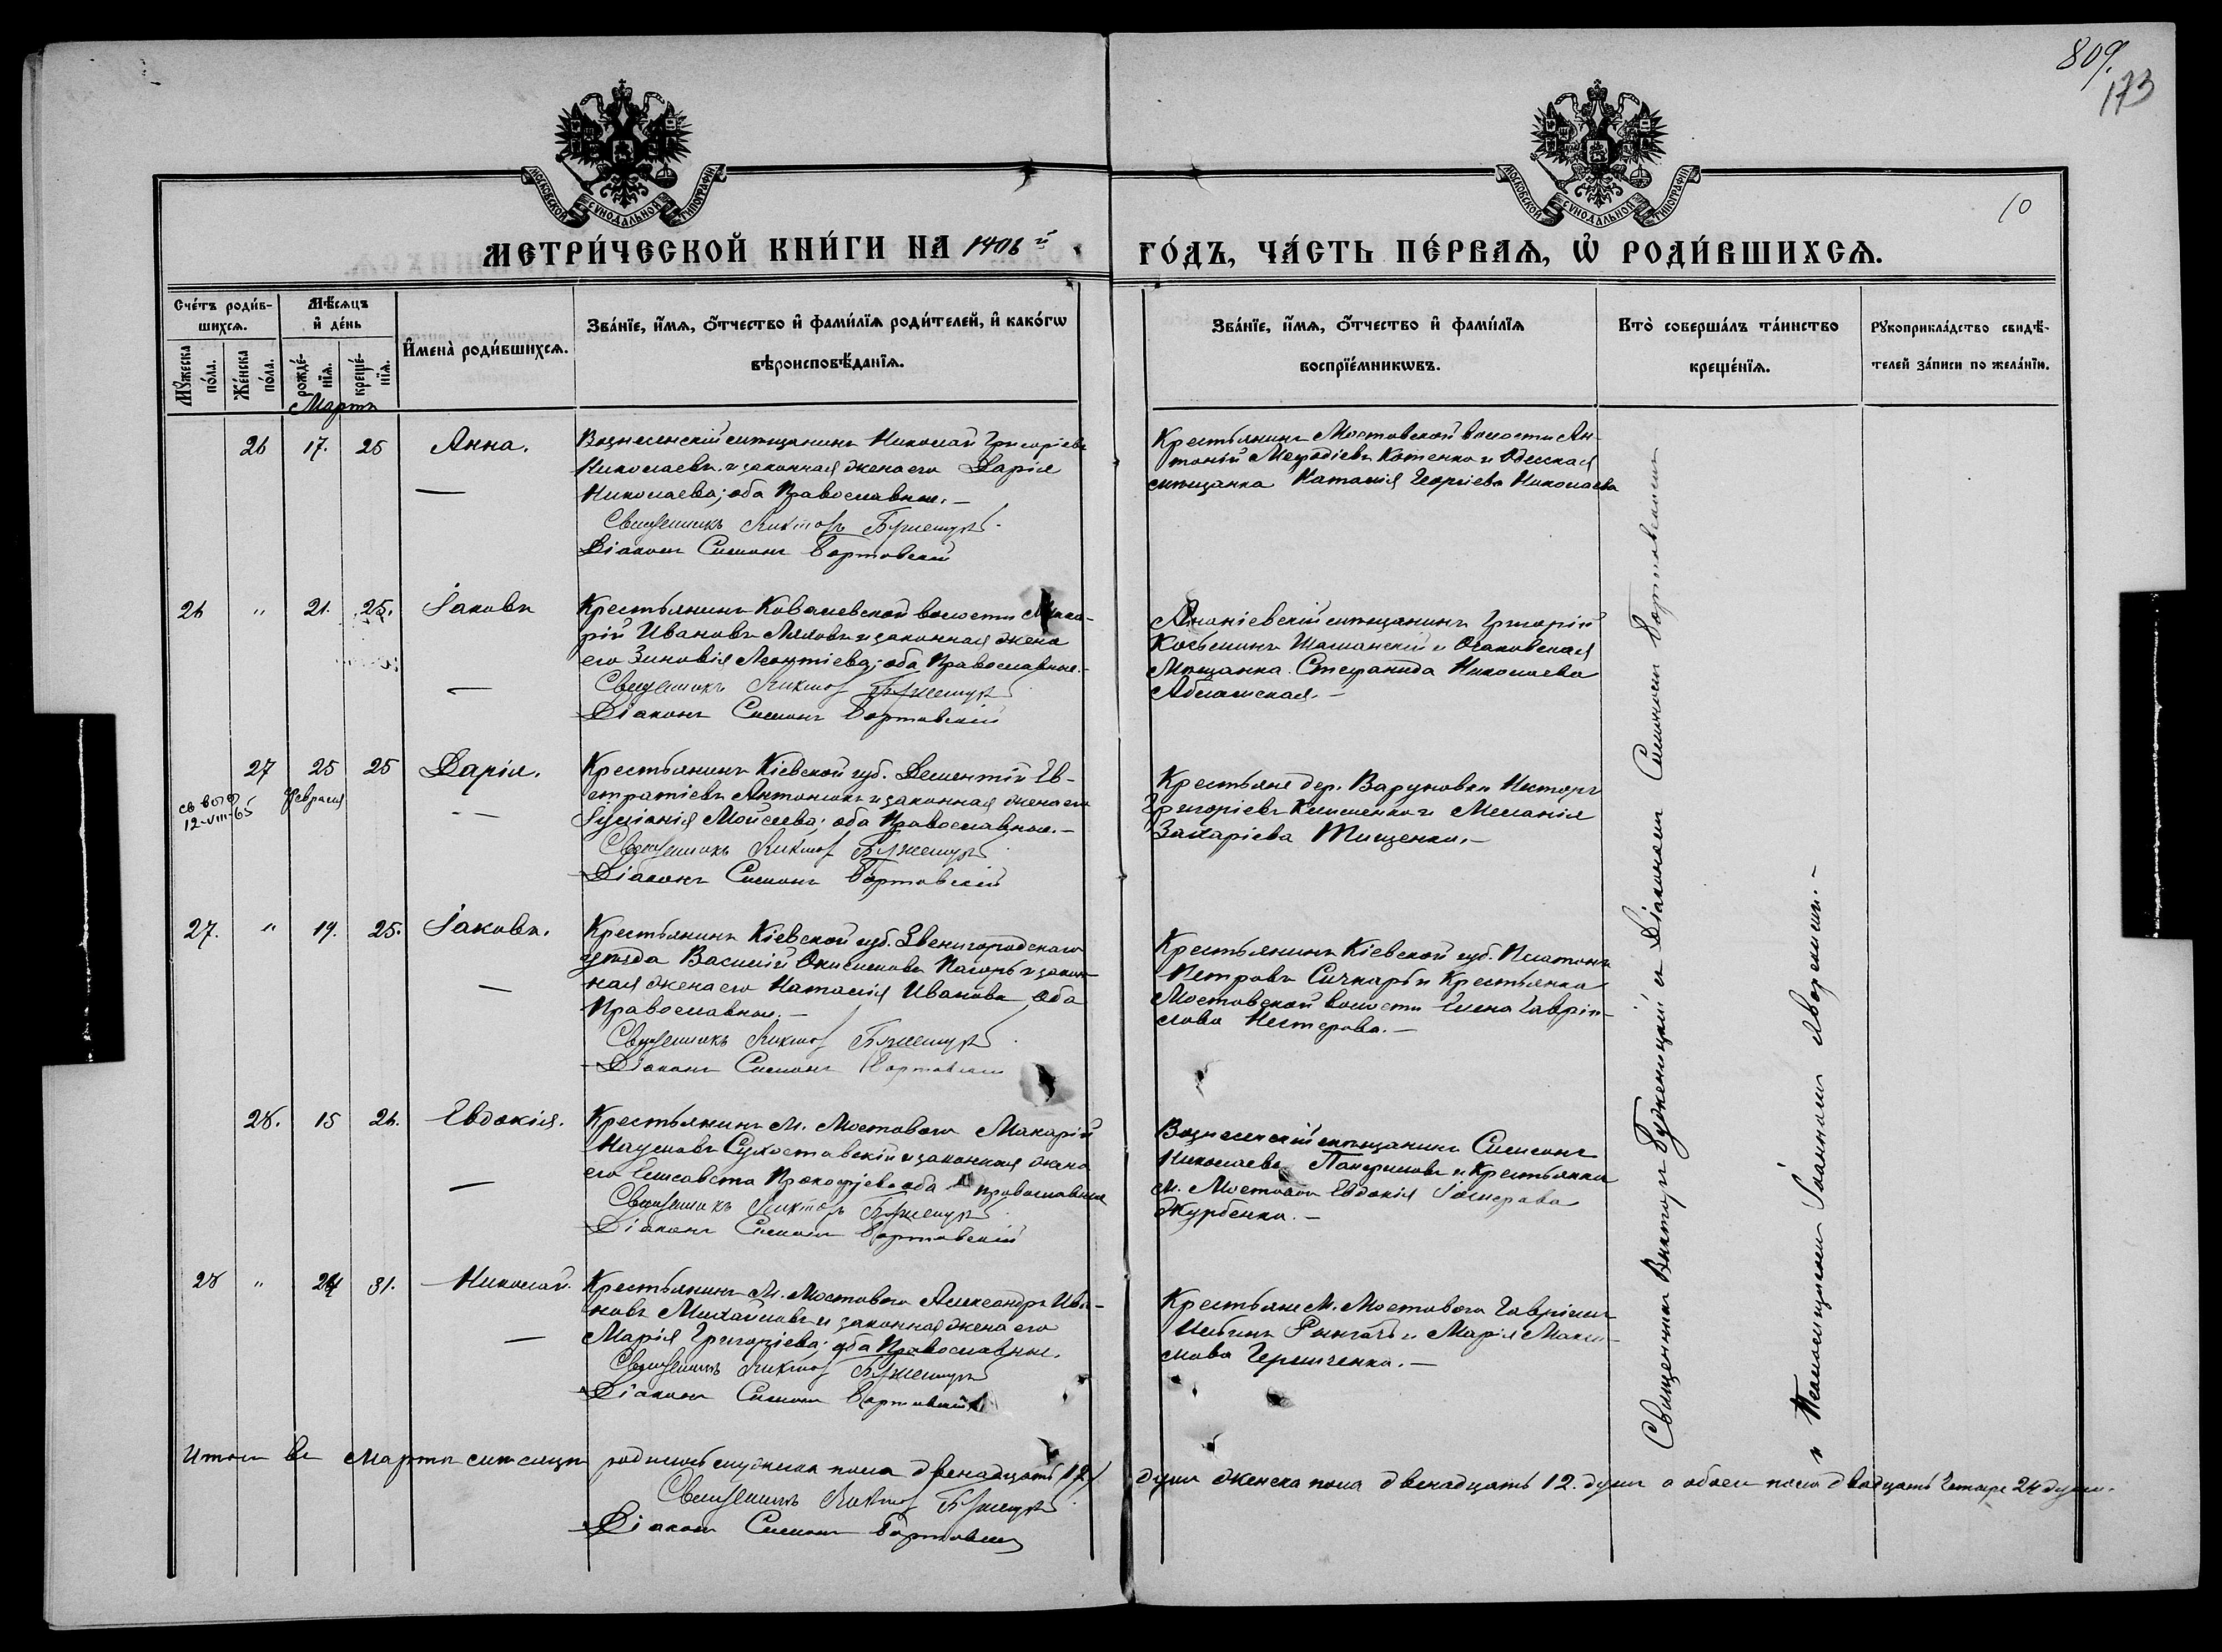 809.
173
10
МОСКОВСКОЙ СѴНОДАЛЬНОЙ ТИПОГРАФІИ
МОСКОВСКОЙ СѴНОДАЛЬНОЙ ТИПОГРАФІИ
МЕТРИ́ЧЕСКОЙ КНИ́ГИ НА 1906й ГО́ДЪ, ЧА́СТЬ ПЕ́РВАѦ, Ѡ҆ РОДИ́ВШИХСѦ.
Сче́тъ роди́в-
шихсѧ.
Мꙋ́жеска по́ла.
Же́нска по́ла.
Мѣ́сѧцъ
и҆ де́нь
рожде́-
нїѧ.
креще́-
нїѧ.
И҆мена̀ роди́вшихсѧ.
Зва́нїе, и҆́мѧ, ѻ҆́тчество и҆ фами́лїѧ роди́телей, и҆ како́гѡ
вѣроисповѣ́данїѧ.
Зва́нїе, и҆́мѧ, ѻ҆́тчество и҆ фами́лїѧ
воспрїе́мникѡвъ.
Кто̀ соверша́лъ та́инство
креще́нїѧ.
Рꙋкоприкла́дство свидѣ́-
телей за́писи по жела́нїю.
Мартъ
26 17. 25 Анна.
Вознесенскій мѣщанинъ Николай Григоріевъ
Николаевъ и законная жена его Дарія
Николаева; оба Православные.—
Священникъ Викторъ
Діаконъ Симонъ Бортовскій
Крестьянинъ Мостовской волости Ан-
тоній Меѳодіевъ Котенко и Одесская
мѣщанка Наталія Георгіева Николаева
26 " 21. 25. Іаковъ
Крестьянинъ Ковалевской волости Мака-
рій Ивановъ Ляховъ и законная жена
его Зиновія Леонтіева; оба Православные.—
Священникъ Викторъ
Діаконъ Симонъ Бортовскій
Ананіевскій мѣщанинъ Григорій
Косьминъ и Очаковская
Мѣщанка Стефанида Николаева
27 25 25 Дарія.
Февраля
св во
12-VIII-65
Крестьянинъ Кіевской губ. Дементій Ев-
стратіевъ Антонюкъ и законная жена его
Іуліанія Моисеева; оба Православные.—
Священникъ Викторъ
Діаконъ Симонъ Бортовскій
Крестьяне дер. Варуновки Несторъ
Григоріевъ Клименко и Меланія
Захаріева Тищенко.—
27. " 19. 25. Іаковъ.
Крестьянинъ Кіевской губ. Звенигородскаго
уѣзда Василій Онисимовъ и закон-
ная жена его Наталія Иванова оба
Православные.—
Священникъ Викторъ
Діаконъ Симонъ Бортовскій
Крестьянинъ Кіевской губ. Платонъ
Петровъ Сичкарь и Крестьянка
Мостовской волости Елена Гавріи-
лова Нестерова.—
28. 15 26. Евдокія.
Крестьянинъ М. Мостового Макарій
Наумовъ Сухоставскій и законная жена
его Елисавета Прокофіева оба православные
Священникъ Викторъ
Діаконъ Симонъ Бортовскій
Вознесенскій мѣщанинъ Симеонъ
Николаевъ Панфиловъ и Крестьянка
М. Мостового Евдокія
Журбенко.—
28 " 24 31. Николай.
Крестьянинъ М. Мостового Александръ Ива-
новъ Михайловъ и законная жена его
Марія Григоріева; оба Православные.
Священникъ Викторъ
Діаконъ Симонъ Бортовскій
Крестьяне М. Мостового Гавріилъ
и Марія Макси-
мова Герищенко.—
Священникъ Викторъ Буженицкій съ Діакономъ Симономъ Бортовскимъ
и Псаломщикомъ Іоанномъ Яворскимъ.—
Итого въ Мартѣ мѣсяцѣ родилось мужеска пола двенадцать 12 душъ женска пола двенадцать 12. душъ а обоего пола двадцать четыре 24 души.
Священникъ Викторъ
Діаконъ Симонъ Бортовскій